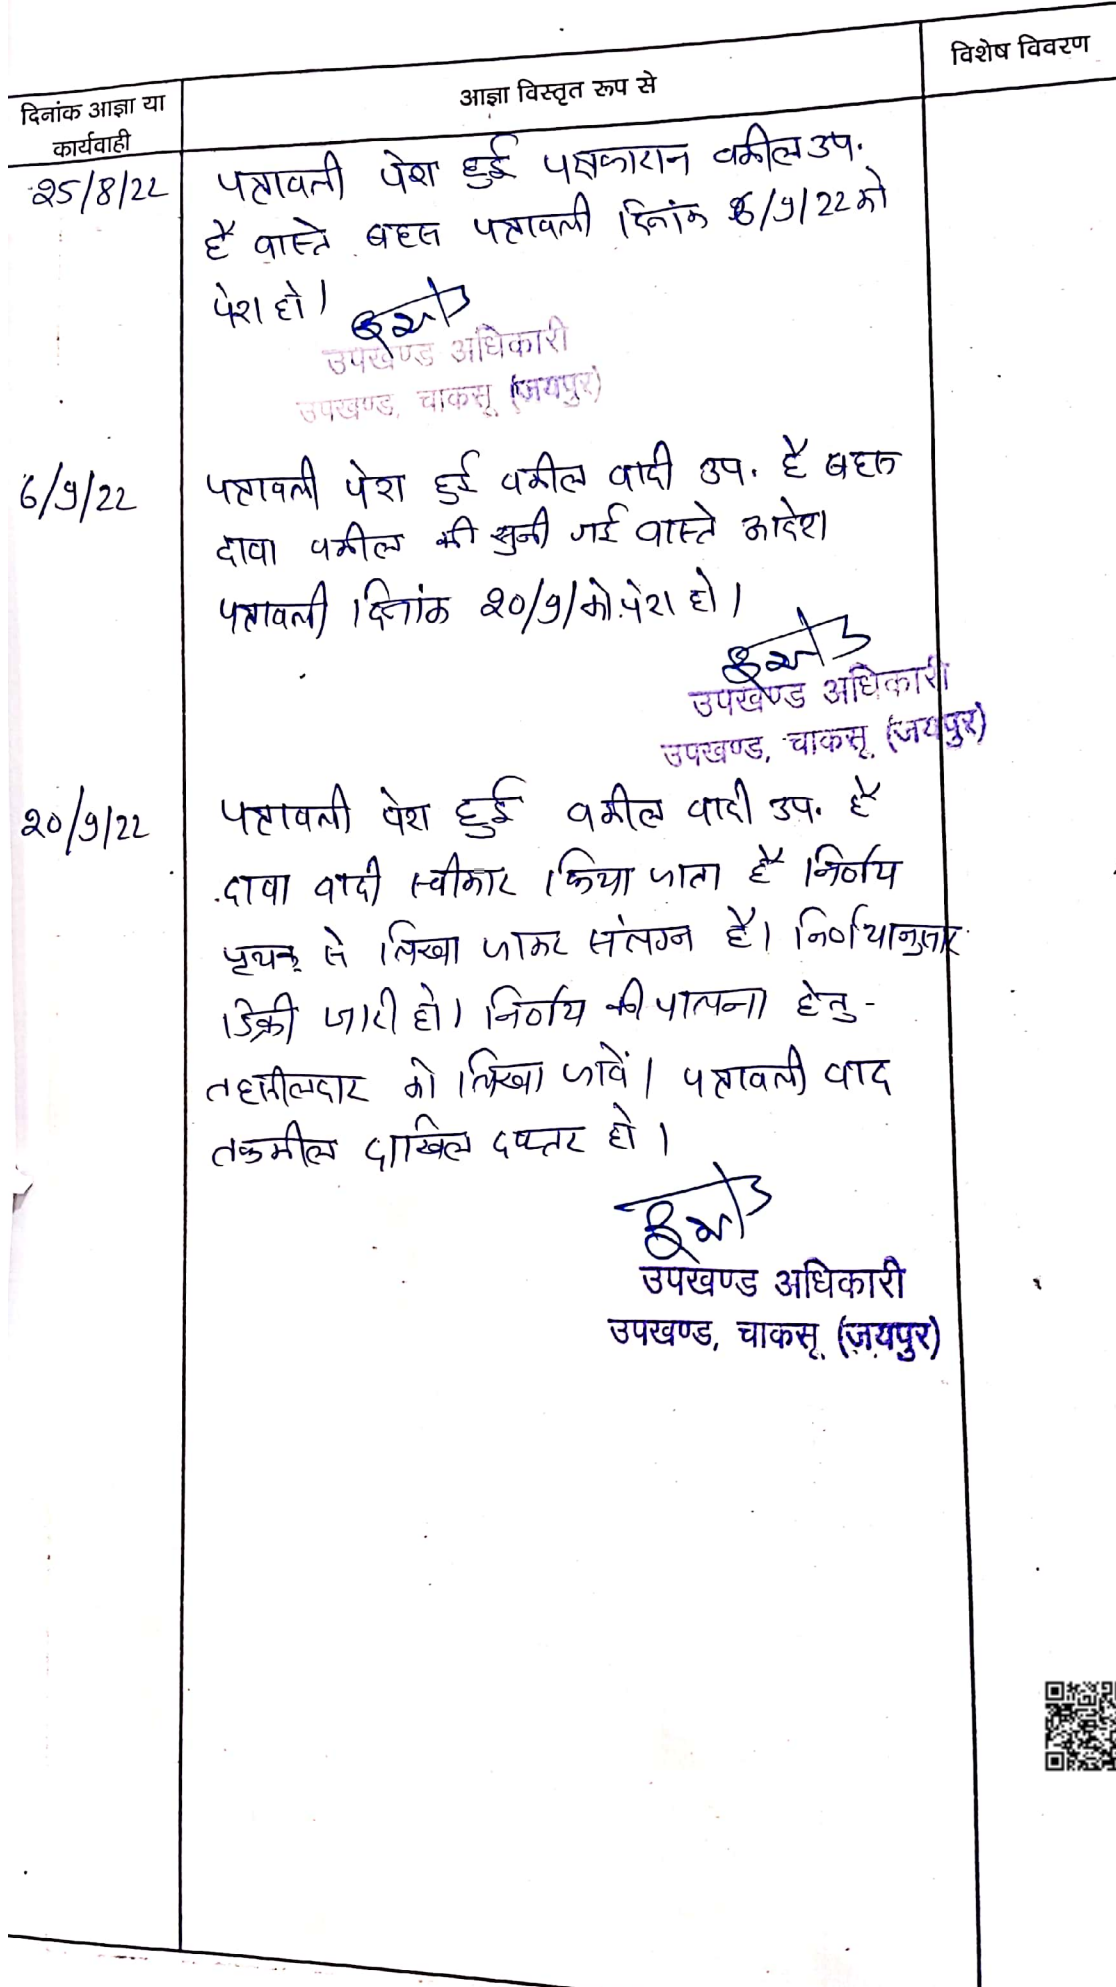 दिनांक आज्ञा या
कार्यवाही
आज्ञा विस्तृत रूप से
विशेष विवरण
25/8/22
पत्रावली पेश हुई पक्षकारान वकील उप.
है वास्ते बहस पत्रावली दिनांक 6/9/22 को
पेश हो।
उपखण्ड अधिकारी
उपखण्ड, चाकसू (जयपुर)
6/9/22
पत्रावली पेश हुई वकील वादी उप. है बहस
दावा वकील की सुनी गई वास्ते आदेश
पत्रावली दिनांक 20/9/को पेश हो।
उपखण्ड अधिकारी
उपखण्ड, चाकसू (जयपुर)
20/9/22
पत्रावली पेश हुई वकील वादी उप. है
दावा वादी स्वीकार किया जाता है निर्णय
पृथक् से लिखा जाकर संलग्न है। निर्णयानुसार
डिक्री जारी हो। निर्णय की पालना हेतु -
तहसीलदार को लिखा जावें। पत्रावली वाद
तकमील दाखिल दफ्तर हो।
उपखण्ड अधिकारी
उपखण्ड, चाकसू (जयपुर)